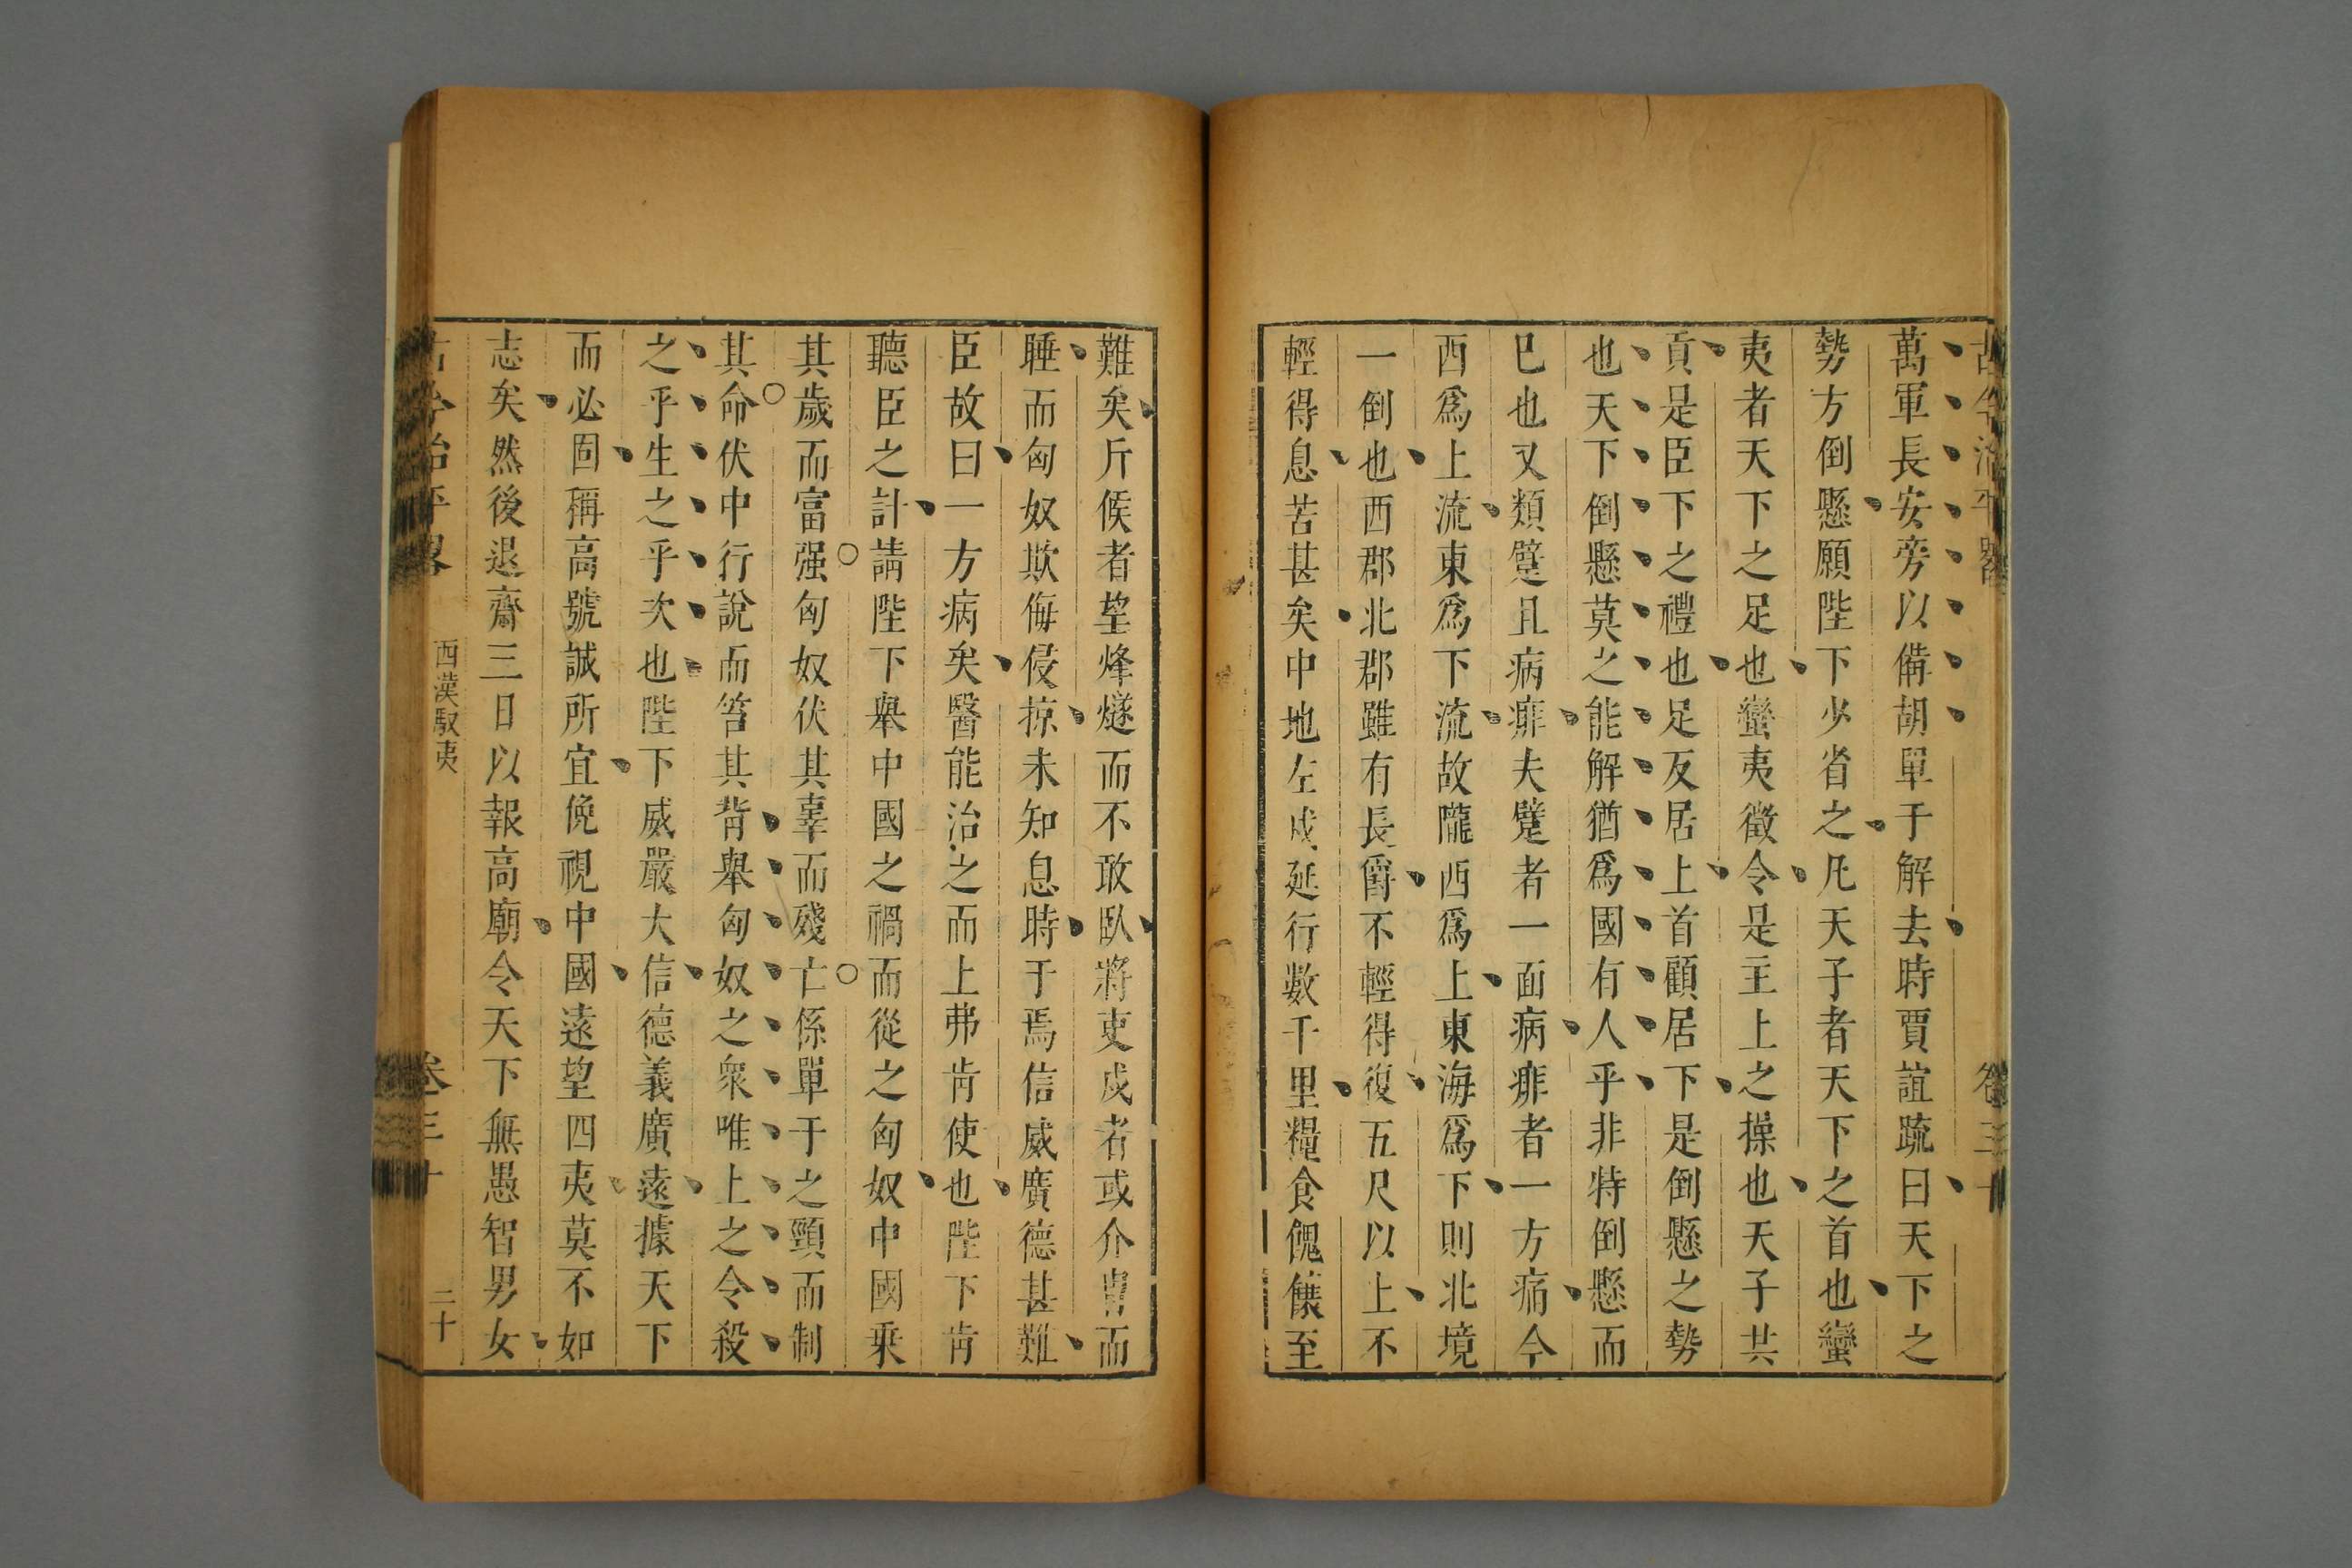 古今治平畧 卷三十
萬軍長安旁以備胡單于解去時賈誼疏曰天下之
勢方倒懸願陛下少省之凡天子者天下之首也蠻
夷者天下之足也蠻夷徵令是主上之操也天子共
貢是臣下之禮也足反居上首顧居下是倒懸之勢
也天下倒懸莫之能解猶爲國有人乎非特倒懸而
已也又類躄且病痱夫躄者一面病痱者一方痛今
西爲上流東爲下流故隴西爲上東海爲下則北境
一倒也西郡北郡雖有長爵不輕得復五尺以上不
輕得息苦甚矣中地左戍延行數千里糧食餽饟至
難矣斤候者望烽燧而不敢臥將吏戍者或介胄而
睡而匈奴欺侮侵掠未知息時于焉信威廣德甚難
臣故曰一方病矣醫能治之而上弗肯使也陛下肯
聽臣之計請陛下舉中國之禍而從之匈奴中國乗
其歲而富强匈奴伏其辜而殘亡係單于之頸而制
其命伏中行說而笞其背舉匈奴之衆唯上之令殺
之乎生之乎次也陛下威嚴大信德義廣遠據天下
而必固稱高號誠所宜俛視中國遠望四夷莫不如
志矣然後退齋三日以報高廟令天下無愚智男女
古今治平畧 西漢馭夷 卷三十 二十